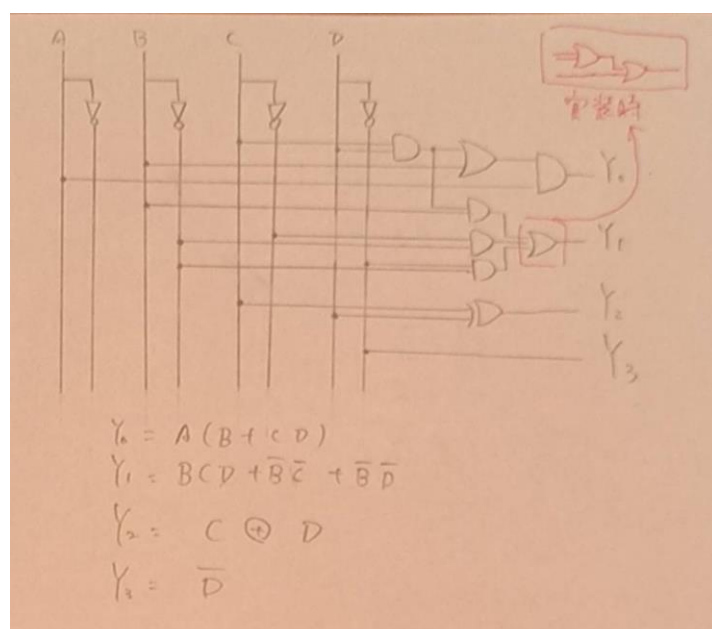 A B C D
実装時
Y₀
Y₁
Y₂
Y₃
Y₀ = A ( B + C D )
Y₁ = B C D + B̅ C̅ + B̅ D̅
Y₂ = C ⊕ D
Y₃ = D̅